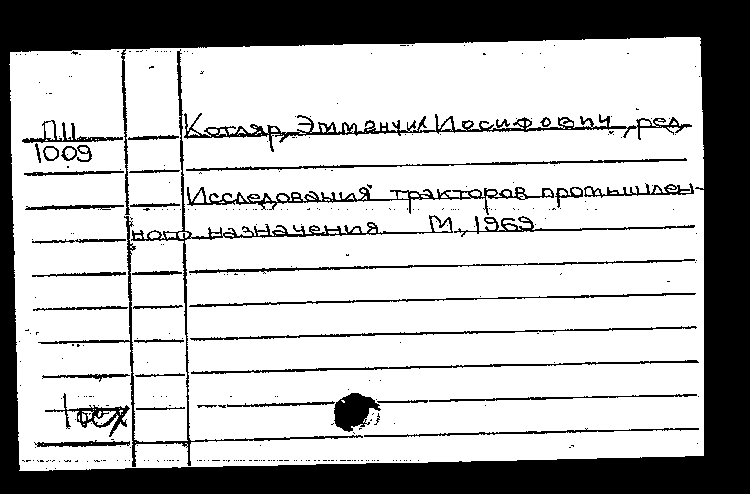 П11 Котляр, Эммануил Иосифович, ред.
1009
Исследования тракторов промышлен-
ного назначения. М., 1969